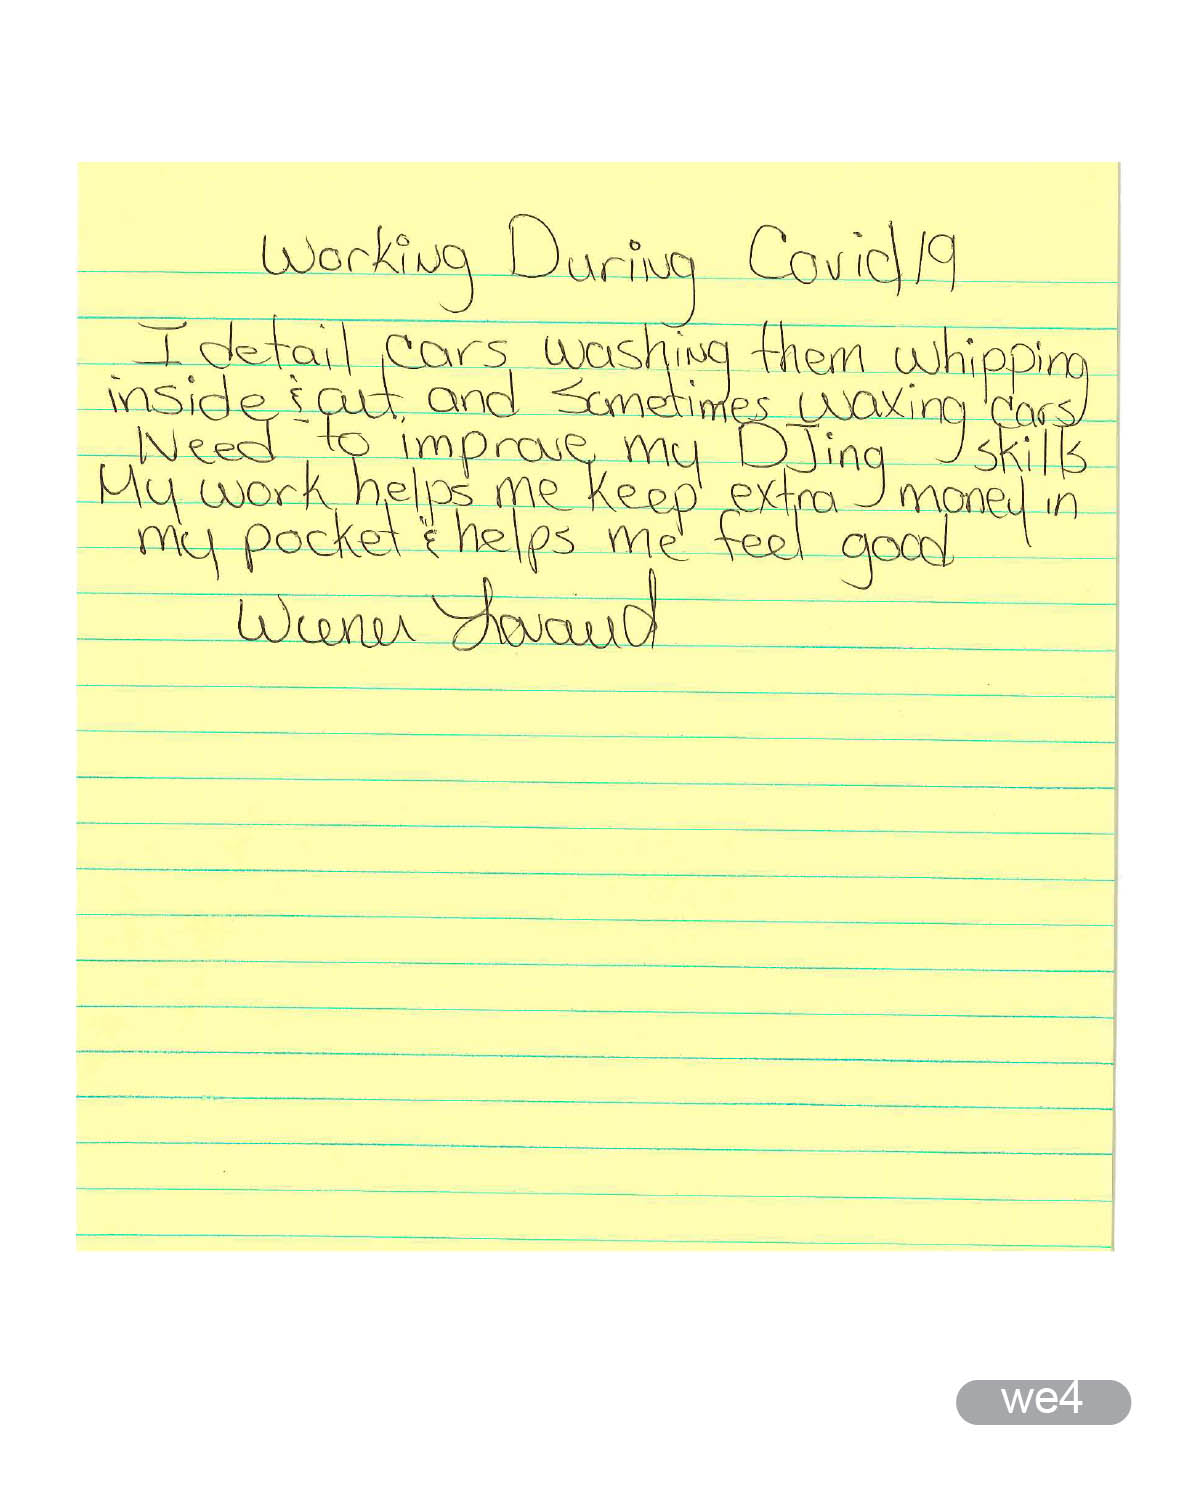 Working During Covid19
I detail cars washing them whipping
inside & out and sometimes waxing cars
Need to improve my DJing skills
My work helps me keep extra money in
my pocket & helps me feel good
Wiener
we4